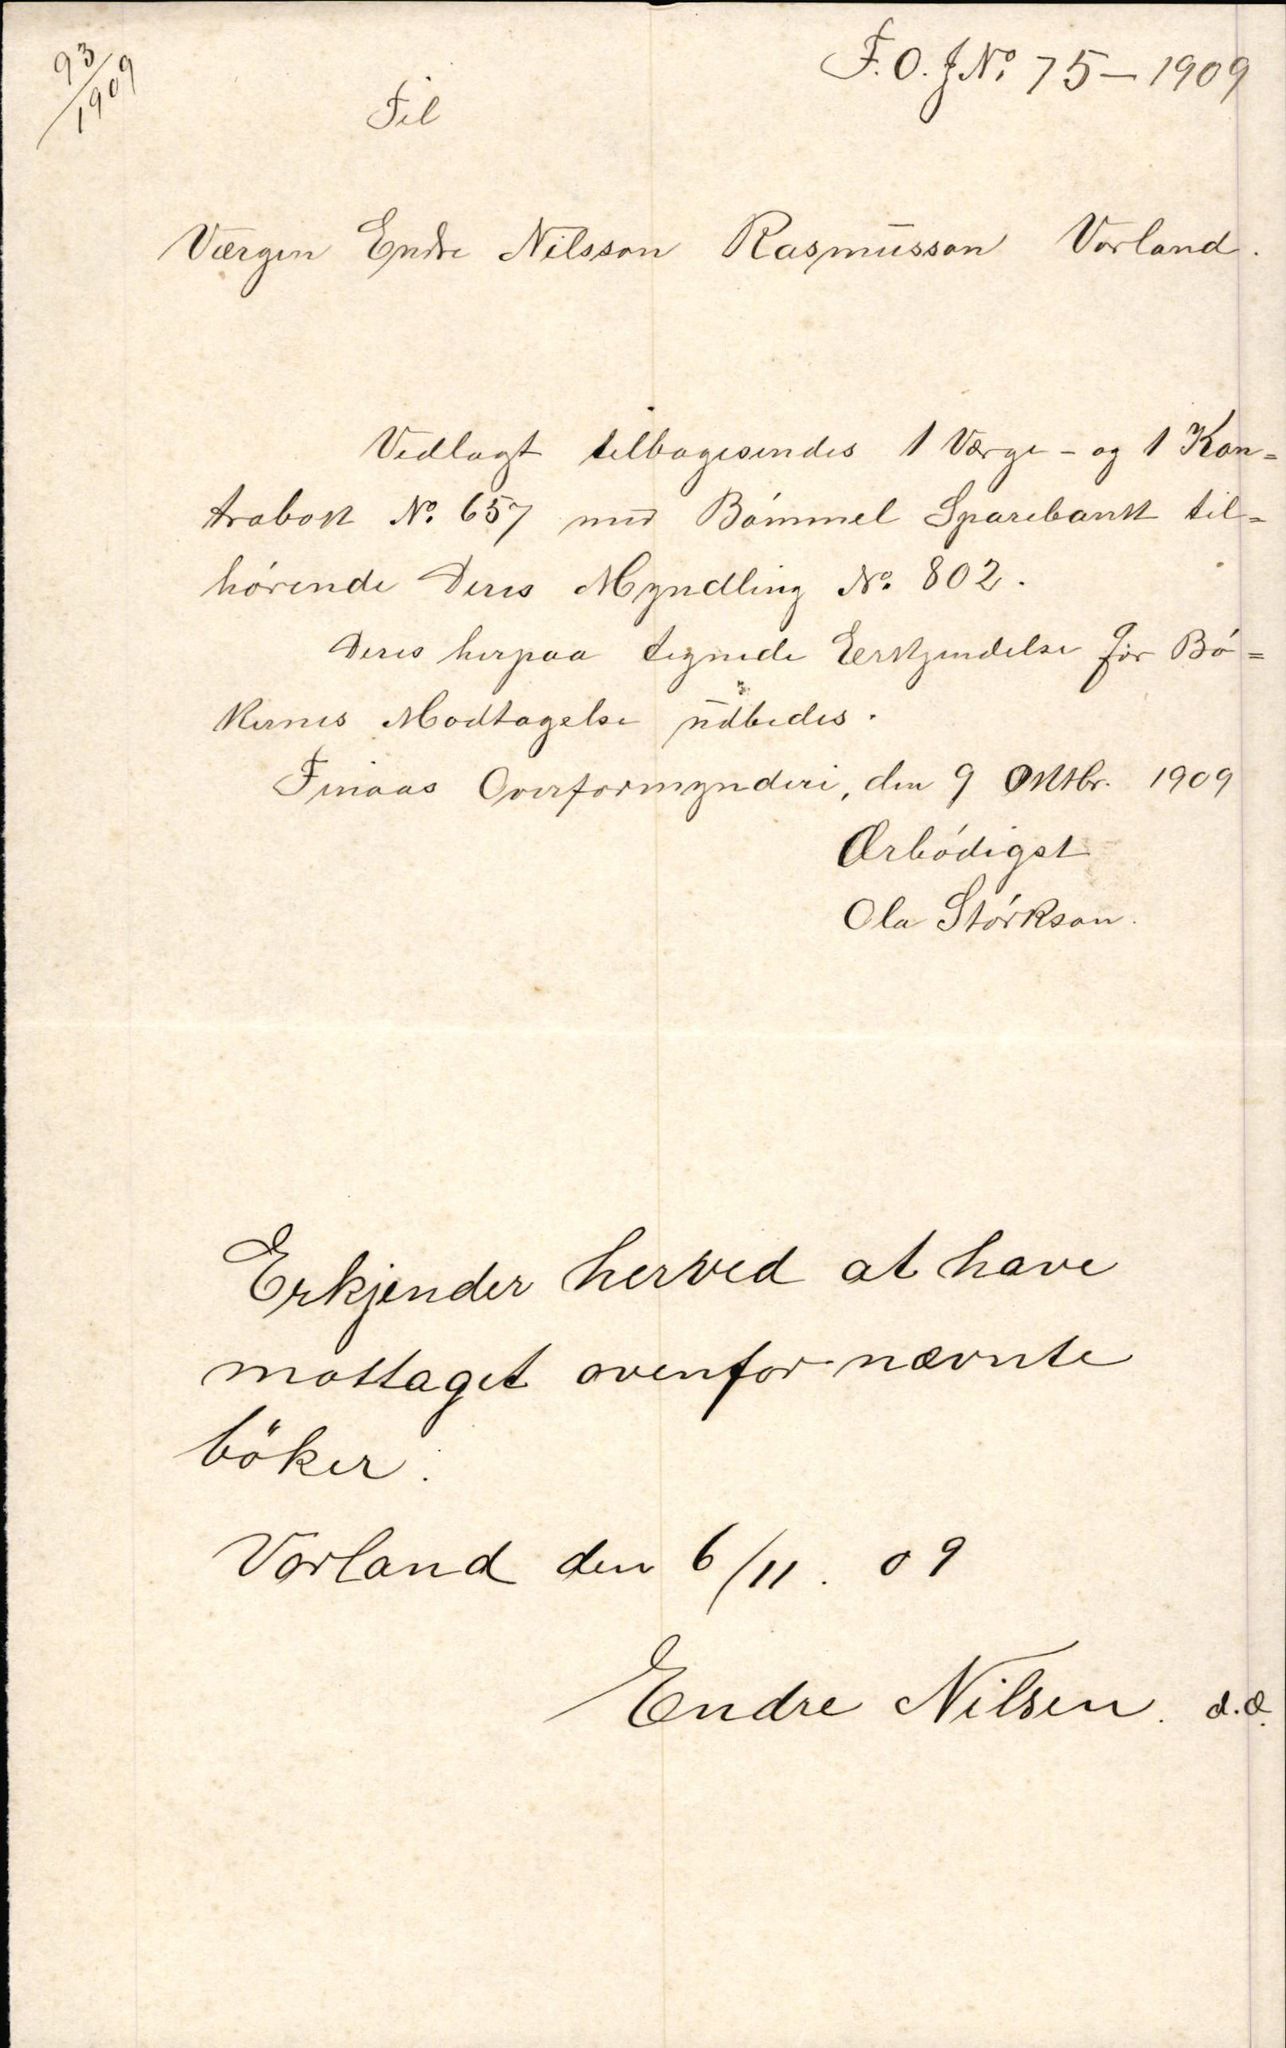 93/1909
F.O.J.No. 75 — 1909
Til
Værgen Endre Nilsson Rasmusson Vorland.
Vedlagt tilbagesendes 1 Værge- og 1 Kon=
trabok No. 657 med Bómmel Sparebank til=
hórende Deres Myndling No. 802.
Deres herpaa tegnede Erkjendelse for Bó=
kernes Modtagelse udbedes.
Finaas Overformynderi, den 9 Oktbr. 1909
Ærbódigst
Ola Stórkson.
Erkjender herved at have
mottaget ovenfor nævnte
böker.
Vorland den 6/11. 09
Endre Nilsen. d.æ.